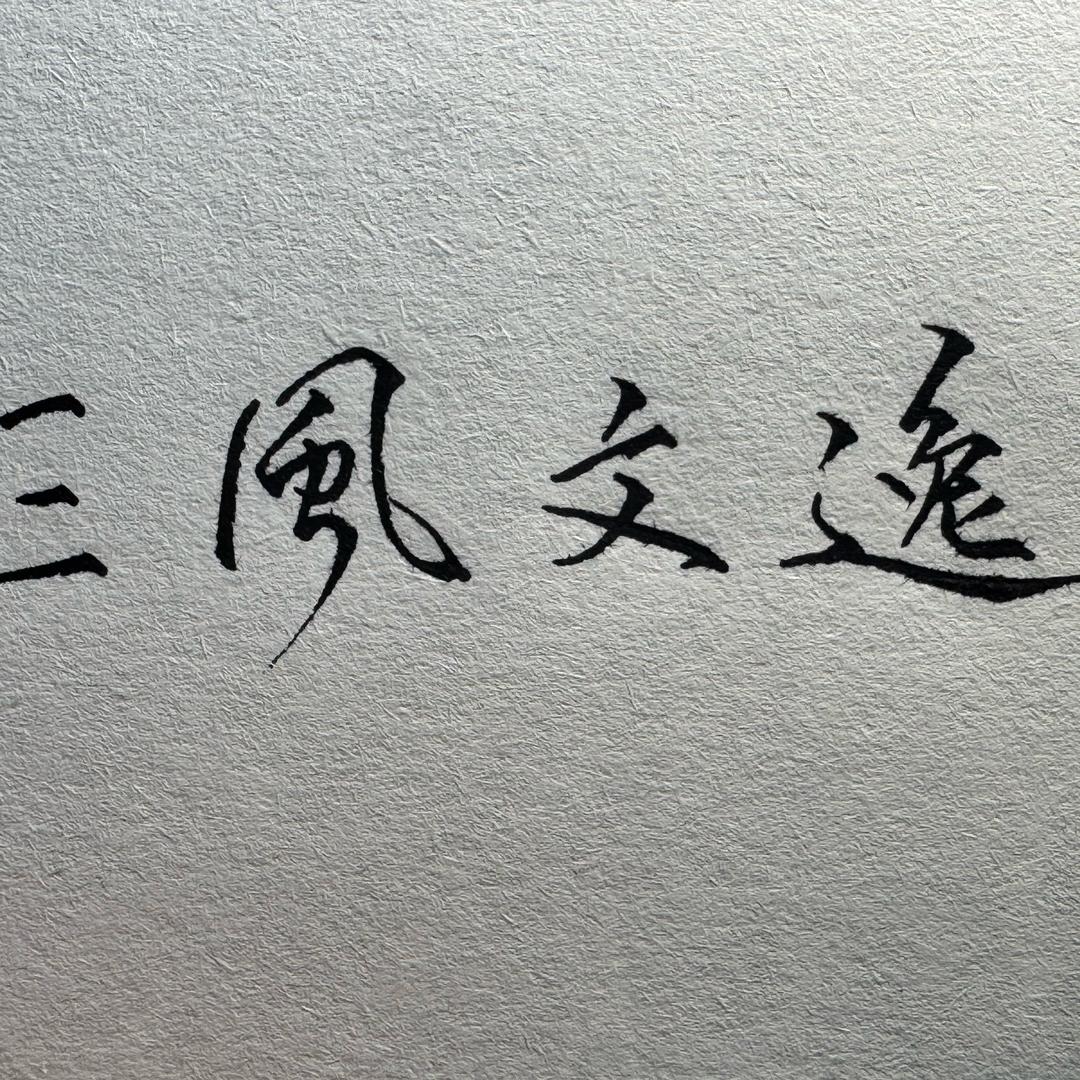 三風文逸